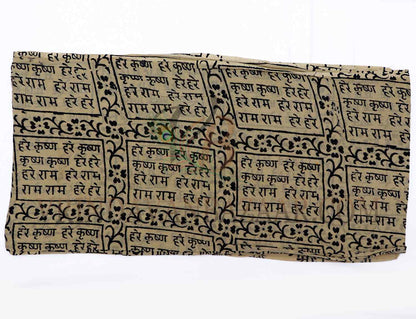 हरे कृष्ण हरे कृष्ण
कृष्ण कृष्ण हरे हरे
हरे राम हरे राम
राम राम हरे हरे
हरे कृष्ण हरे कृष्ण
कृष्ण कृष्ण हरे हरे
हरे राम हरे राम
राम राम हरे हरे
हरे कृष्ण हरे कृष्ण
कृष्ण कृष्ण हरे हरे
हरे राम हरे राम
राम राम हरे हरे
हरे कृष्ण
कृष्ण कृष्ण
हरे राम
राम राम
हरे कृष्ण हरे कृष्ण
कृष्ण कृष्ण हरे हरे
हरे राम हरे राम
राम राम हरे हरे
हरे कृष्ण हरे कृष्ण
कृष्ण कृष्ण हरे हरे
हरे राम हरे राम
राम राम हरे हरे
हरे कृष्ण हरे कृष्ण
कृष्ण कृष्ण हरे हरे
हरे राम हरे राम
राम राम हरे हरे
हरे कृष्ण हरे कृष्ण
कृष्ण कृष्ण हरे हरे
हरे कृष्ण हरे कृष्ण